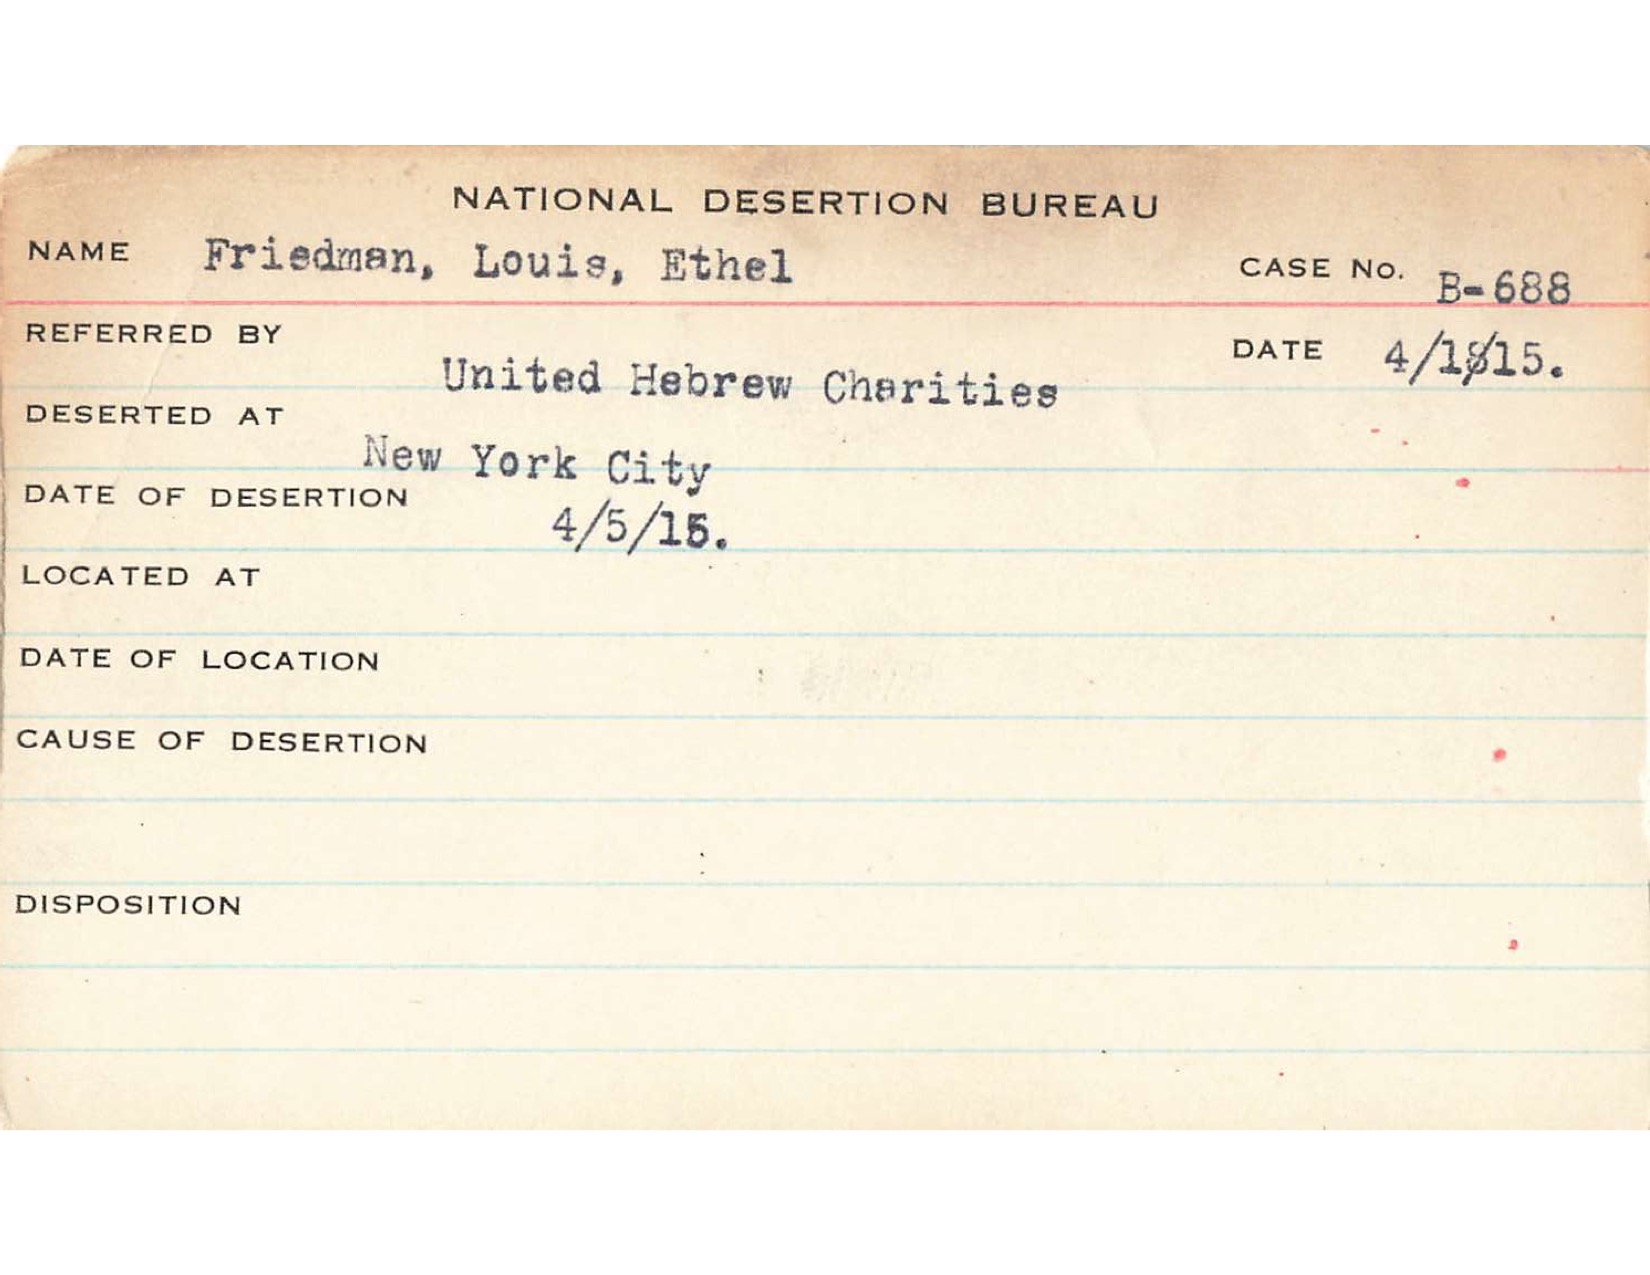 NATIONAL DESERTION BUREAU
NAME Friedman, Louis, Ethel CASE No. B-688
REFERRED BY United Hebrew Charities DATE 4/18/15.
DESERTED AT New York City
DATE OF DESERTION 4/5/15.
LOCATED AT
DATE OF LOCATION
CAUSE OF DESERTION
DISPOSITION